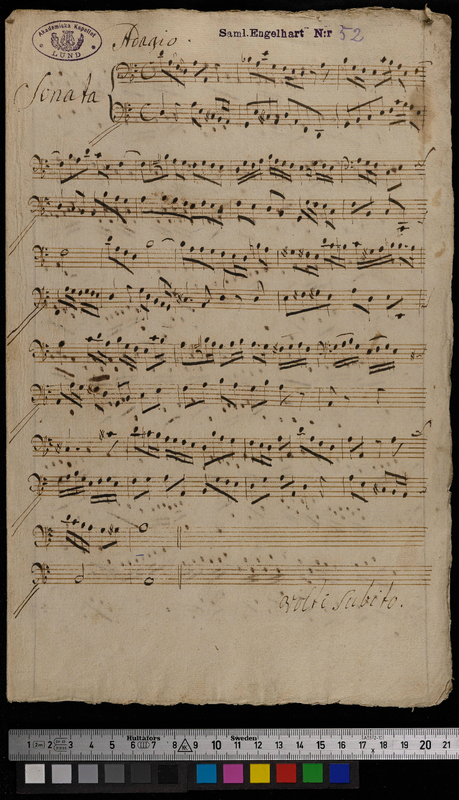 Akademiska Kapellet
LUND
Adagio.
Saml. Engelhart Nr 52
Sonata
volti subito.
Hultafors Sweden
1 2 3 4 5 6 7 8 9 10 11 12 13 14 15 16 17 18 19 20 21